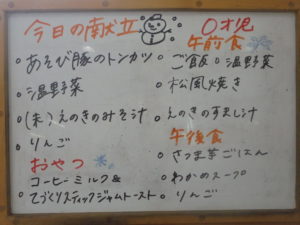 今日の献立
あそび豚のトンカツ
温野菜
(朱)えのきのみそ汁
りんご
おやつ
コーヒーミルク&
てづくりスティックジャムトースト
0才児
午前食
ご飯 温野菜
松風焼き
えのきのすまし汁
午後食
さつま芋ごはん
わかめスープ
りんご